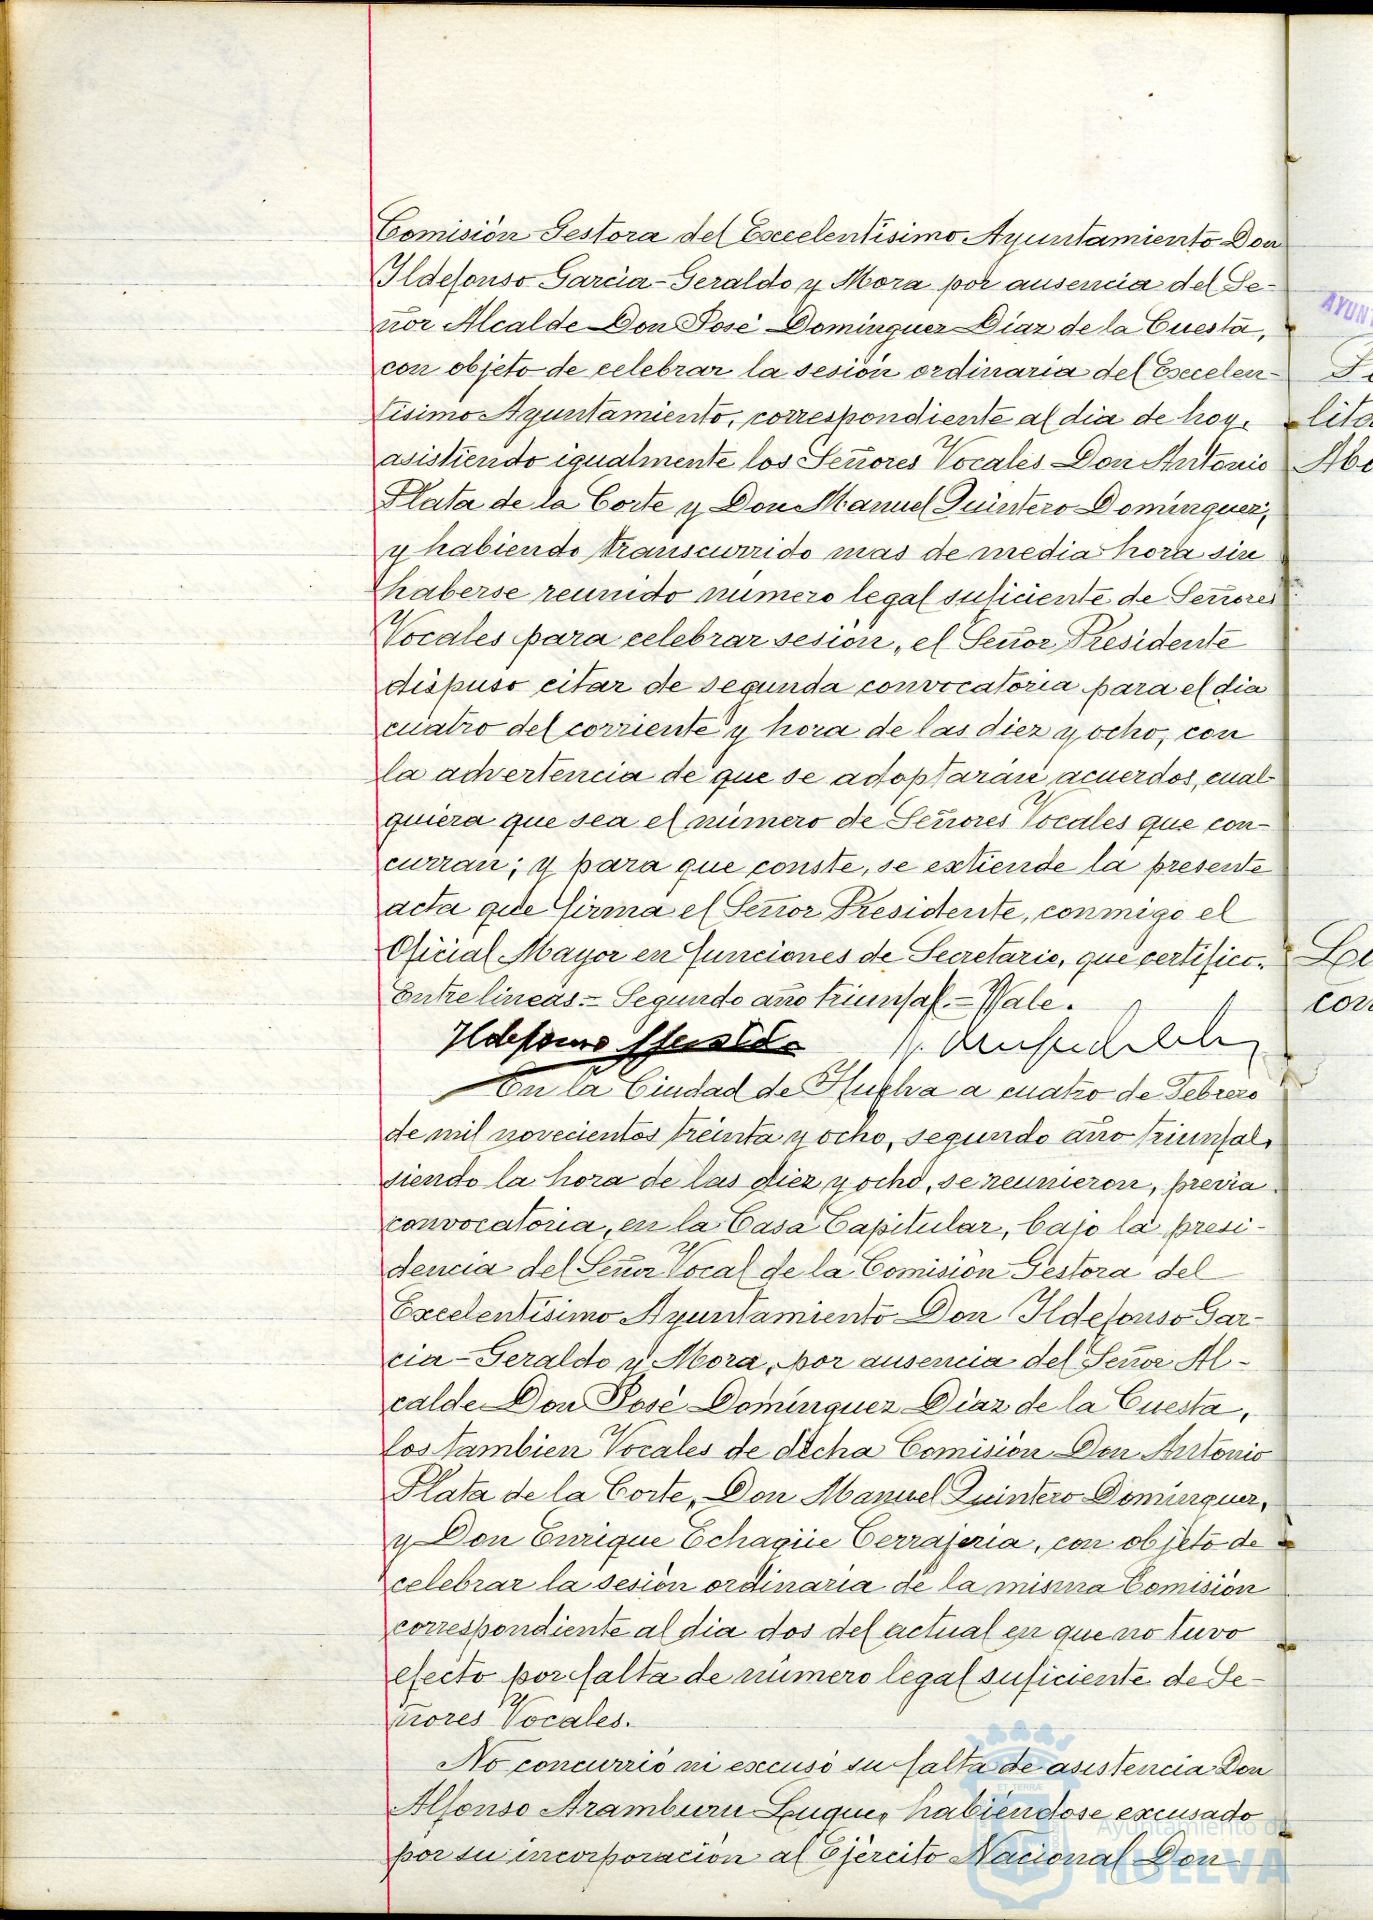 Comisión Gestora del Excelentísimo Ayuntamiento Don
Ildefonso Garcia-Geraldo y Mora por ausencia del Se-
ñor Alcalde Don José Domínguez Díaz de la Cuesta,
con objeto de celebrar la sesión ordinaria del Excelen-
tísimo Ayuntamiento, correspondiente al dia de hoy,
asistiendo igualmente los Señores Vocales Don Antonio
Plata de la Corte y Don Manuel Quintero Domínguez,
y habiendo transcurrido mas de media hora sin
haberse reunido número legal suficiente de Señores
Vocales para celebrar sesión, el Señor Presidente
dispuso citar de segunda convocatoria para el dia
cuatro del corriente y hora de las diez y ocho, con
la advertencia de que se adoptarán acuerdos, cual-
quiera que sea el número de Señores Vocales que con-
curran; y para que conste, se extiende la presente
acta que firma el Señor Presidente, conmigo el
Oficial Mayor en funciones de Secretario, que certifico.
Entrelineas.= Segundo año triunfal.= Vale.
Ildefonso Geraldo
En la Ciudad de Huelva a cuatro de Febrero
de mil novecientos treinta y ocho, segundo año triunfal,
siendo la hora de las diez y ocho, se reunieron, previa
convocatoria, en la Casa Capitular, bajo la presi-
dencia del Señor Vocal de la Comisión Gestora del
Excelentísimo Ayuntamiento Don Ildefonso Gar-
cia-Geraldo y Mora, por ausencia del Señor Al-
calde Don José Domínguez Díaz de la Cuesta,
los tambien Vocales de dicha Comisión Don Antonio
Plata de la Corte, Don Manuel Quintero Domínguez,
y Don Enrique Echagüe Cerrajeria, con objeto de
celebrar la sesión ordinaria de la misma Comisión
correspondiente al dia dos del actual en que no tuvo
efecto por falta de número legal suficiente de Se-
ñores Vocales.
No concurrió ni excusó su falta de asistencia Don
Alfonso Aramburu Luque, habiéndose excusado
por su incorporación al Ejército Nacional Don
Ayuntamiento de
HUELVA